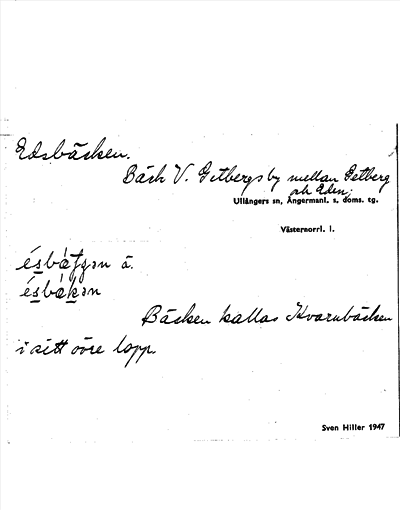 Edsbäcken.
Bäck V. Getbergs by mellan Getberg
och Eden;
Ullångers sn, Ångermanl. s. doms. tg.
Västernorrl. l.
ésbä́
ésbä́kən
Bäcken kallas Kvarnbäcken
i sitt övre lopp.
Sven Hiller 1947